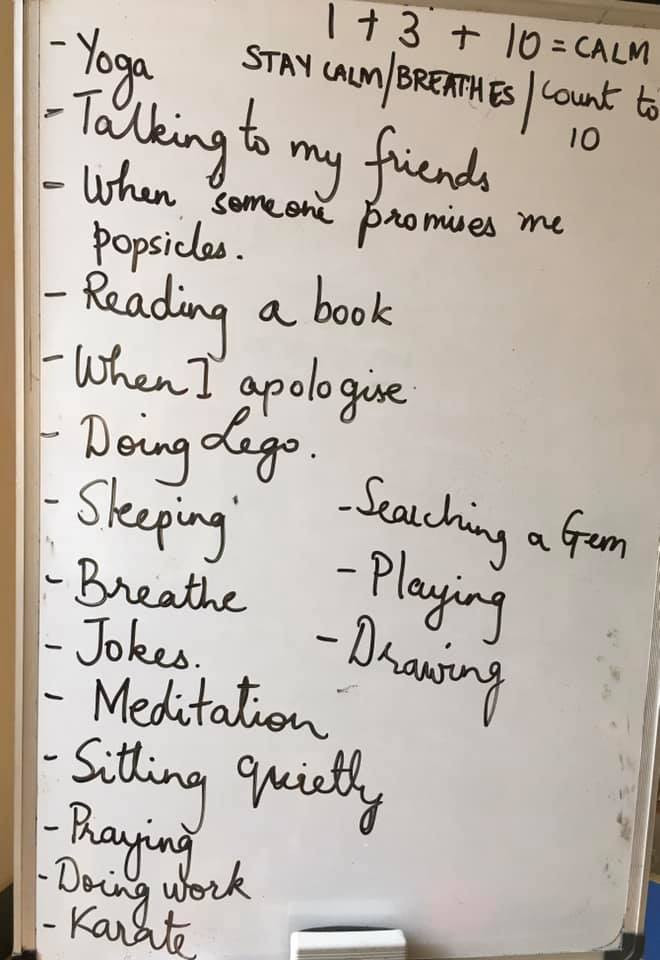 1 + 3 + 10 = CALM
STAY CALM/BREATHES/Count to
10
- Yoga
- Talking to my friends
- When someone promises me
popsicles.
- Reading a book
- When I apologise
- Doing Lego.
- Sleeping
- Breathe
- Jokes.
- Meditation
- Sitting quietly
- Praying
- Doing work
- Karate
- Searching a Gem
- Playing
- Drawing